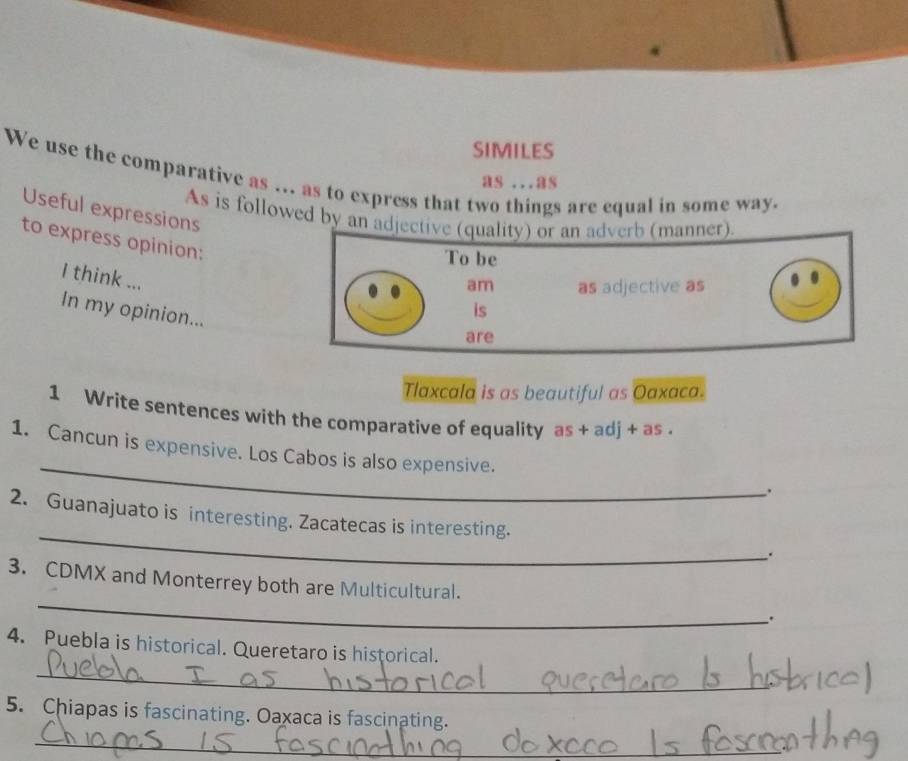 SIMILES
as ...as
We use the comparative as ... as to express that two things are equal in some way.
As is followed by an adjective (quality) or an adverb (manner).
Useful expressions
to express opinion:
I think ...
In my opinion...
To be
am as adjective as
is
are
Tlaxcala is as beautiful as Oaxaca.
1 Write sentences with the comparative of equality as + adj + as .
1. Cancun is expensive. Los Cabos is also expensive.
.
2. Guanajuato is interesting. Zacatecas is interesting.
.
3. CDMX and Monterrey both are Multicultural.
.
4. Puebla is historical. Queretaro is historical.
Puebla I as historical queretaro Is
5. Chiapas is fascinating. Oaxaca is fascinating.
Chiapas is Is